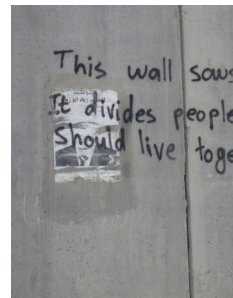 This wall sows
It divides people
Should live toge